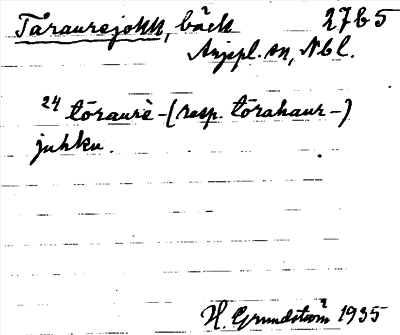 Tåraurejokk, bäck 27 b 5
Arjepl. sn, Nbl.
24 tōraurè- (resp. tōrahaur-)
juhku.
H. Grundström 1935